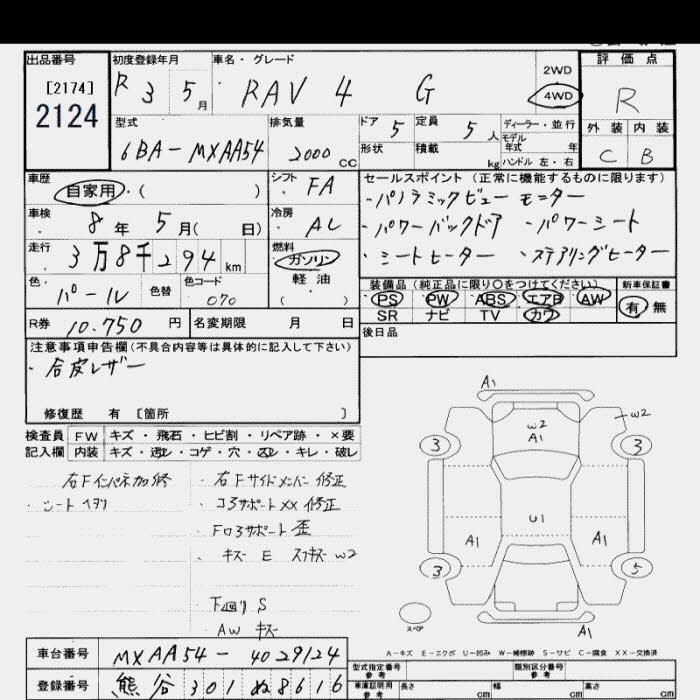 出品番号 初度登録年月 車名・グレード 評価点
[2174] 2124
R 3 5月 RAV 4 G 2WD 4WD R
型式 排気量 ドア 5 定員 5人 ディーラー・並行
モデル年式 年
外装 内装
6BA-MXAA54 2000cc 形状 積載 kg ハンドル 左・右 C B
車歴 シフト FA セールスポイント (正常に機能するものに限ります)
自家用・( )
・パノラミックビューモニター
車検 8年 5月( 日) 冷房 AC
・パワーバックドア ・パワーシート
走行 3万8千294km 燃料 ガソリン 軽油 ( )
・シートヒーター ・ステアリングヒーター
色 パール 色替 色コード 070
装備品 (純正品に限り○をつけてください) 新車保証書
PS PW ABS エアB AW 有・無
SR ナビ TV カワ
R券 10.750円 名変期限 月 日
後日品
注意事項申告欄(不具合内容等は具体的に記入して下さい)
・合皮レザー
修復歴 有 〔箇所 〕
検査員 FW キズ・飛石・ヒビ割・リペア跡・×要
記入欄 内装 キズ・汚レ・コゲ・穴・スレ・キレ・破レ
右Fインパネ加修 ・右Fサイドメンバー修正
・シートヘタリ ・コアサポートXX修正
・Fロアサポート歪
・キズ E スリキズ W2
下廻りS
・AW キズ
A1
W2
W2
A1
3 3
U1
A1 A1
3 5
スペア A1
A-キズ E-エクボ U-凹み W-補修跡 S-サビ C-腐食 XX-交換済
車台番号 MXAA54-4029124
登録番号 熊谷 301 ぬ 8616
型式指定番号 参考 類別区分番号 参考
車庫証明用 参考 長さ cm 幅 cm 高さ cm